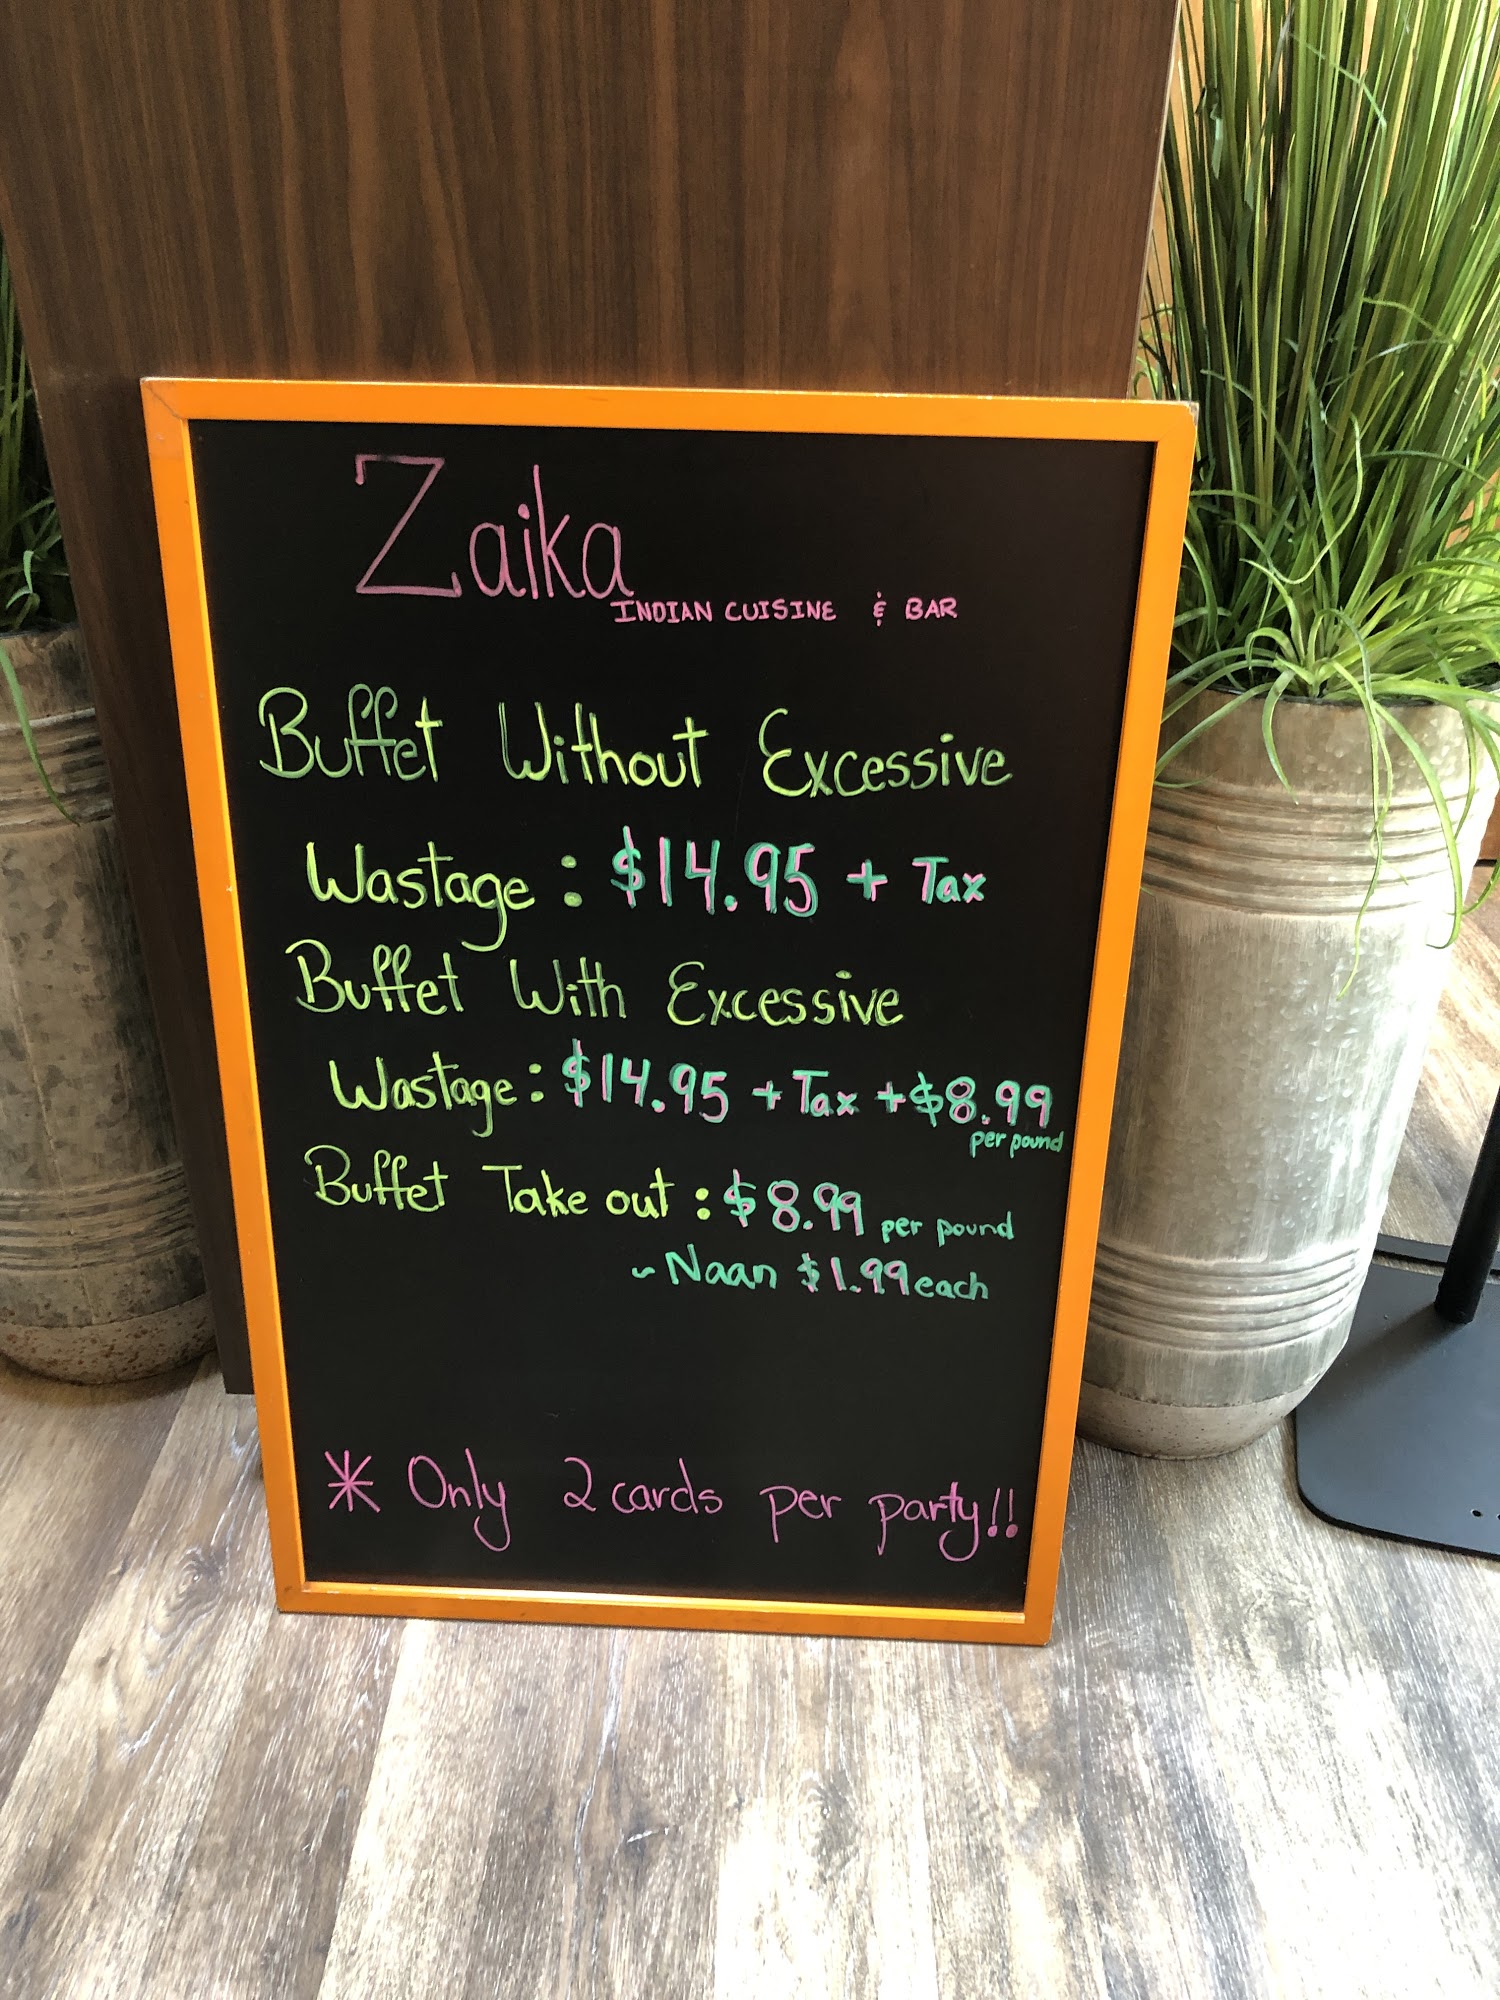 Zaika
INDIAN CUISINE & BAR
Buffet Without Excessive
Wastage : $14.95 + Tax
Buffet With Excessive
Wastage : $14.95 + Tax + $8.99
per pound
Buffet Take out : $8.99 per pound
~ Naan $1.99 each
* Only 2 cards per party!!